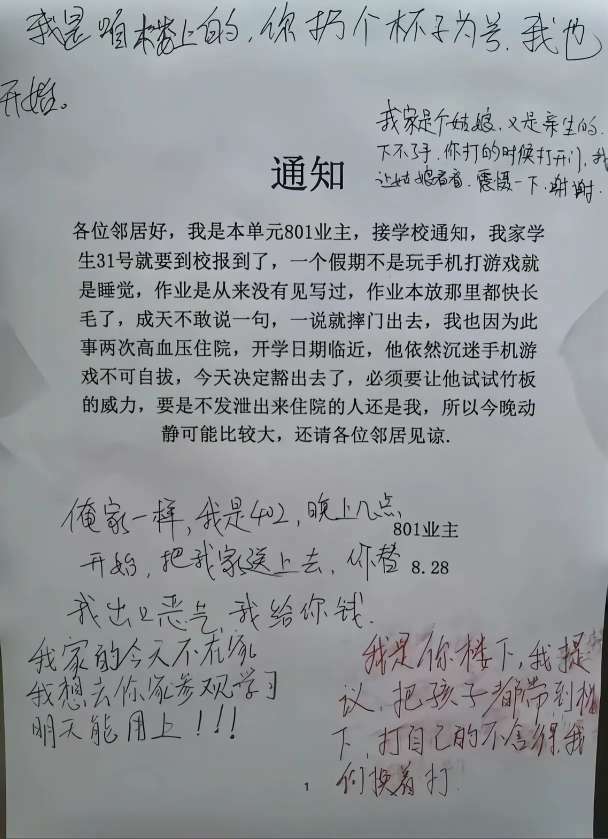 我是咱楼上的,你扔个杯子为号.我也
开始。
我家是个姑娘,又是亲生的.
下不了手.你打的时候打开门,我
让姑娘看看.震慑一下.谢谢.
通知
各位邻居好，我是本单元801业主，接学校通知，我家学
生31号就要到校报到了，一个假期不是玩手机打游戏就
是睡觉，作业是从来没有见写过，作业本放那里都快长
毛了，成天不敢说一句，一说就摔门出去，我也因为此
事两次高血压住院，开学日期临近，他依然沉迷手机游
戏不可自拔，今天决定豁出去了，必须要让他试试竹板
的威力，要是不发泄出来住院的人还是我，所以今晚动
静可能比较大，还请各位邻居见谅.
801业主
8.28
俺家一样,我是402,晚上几点
开始,把我家送上去,你替
我出口恶气,我给你钱.
我家的今天不在家
我想去你家参观学习
明天能用上!!!
我是你楼下,我提
议,把孩子都带到楼
下,打自己的不舍得,我
们换着打.
1